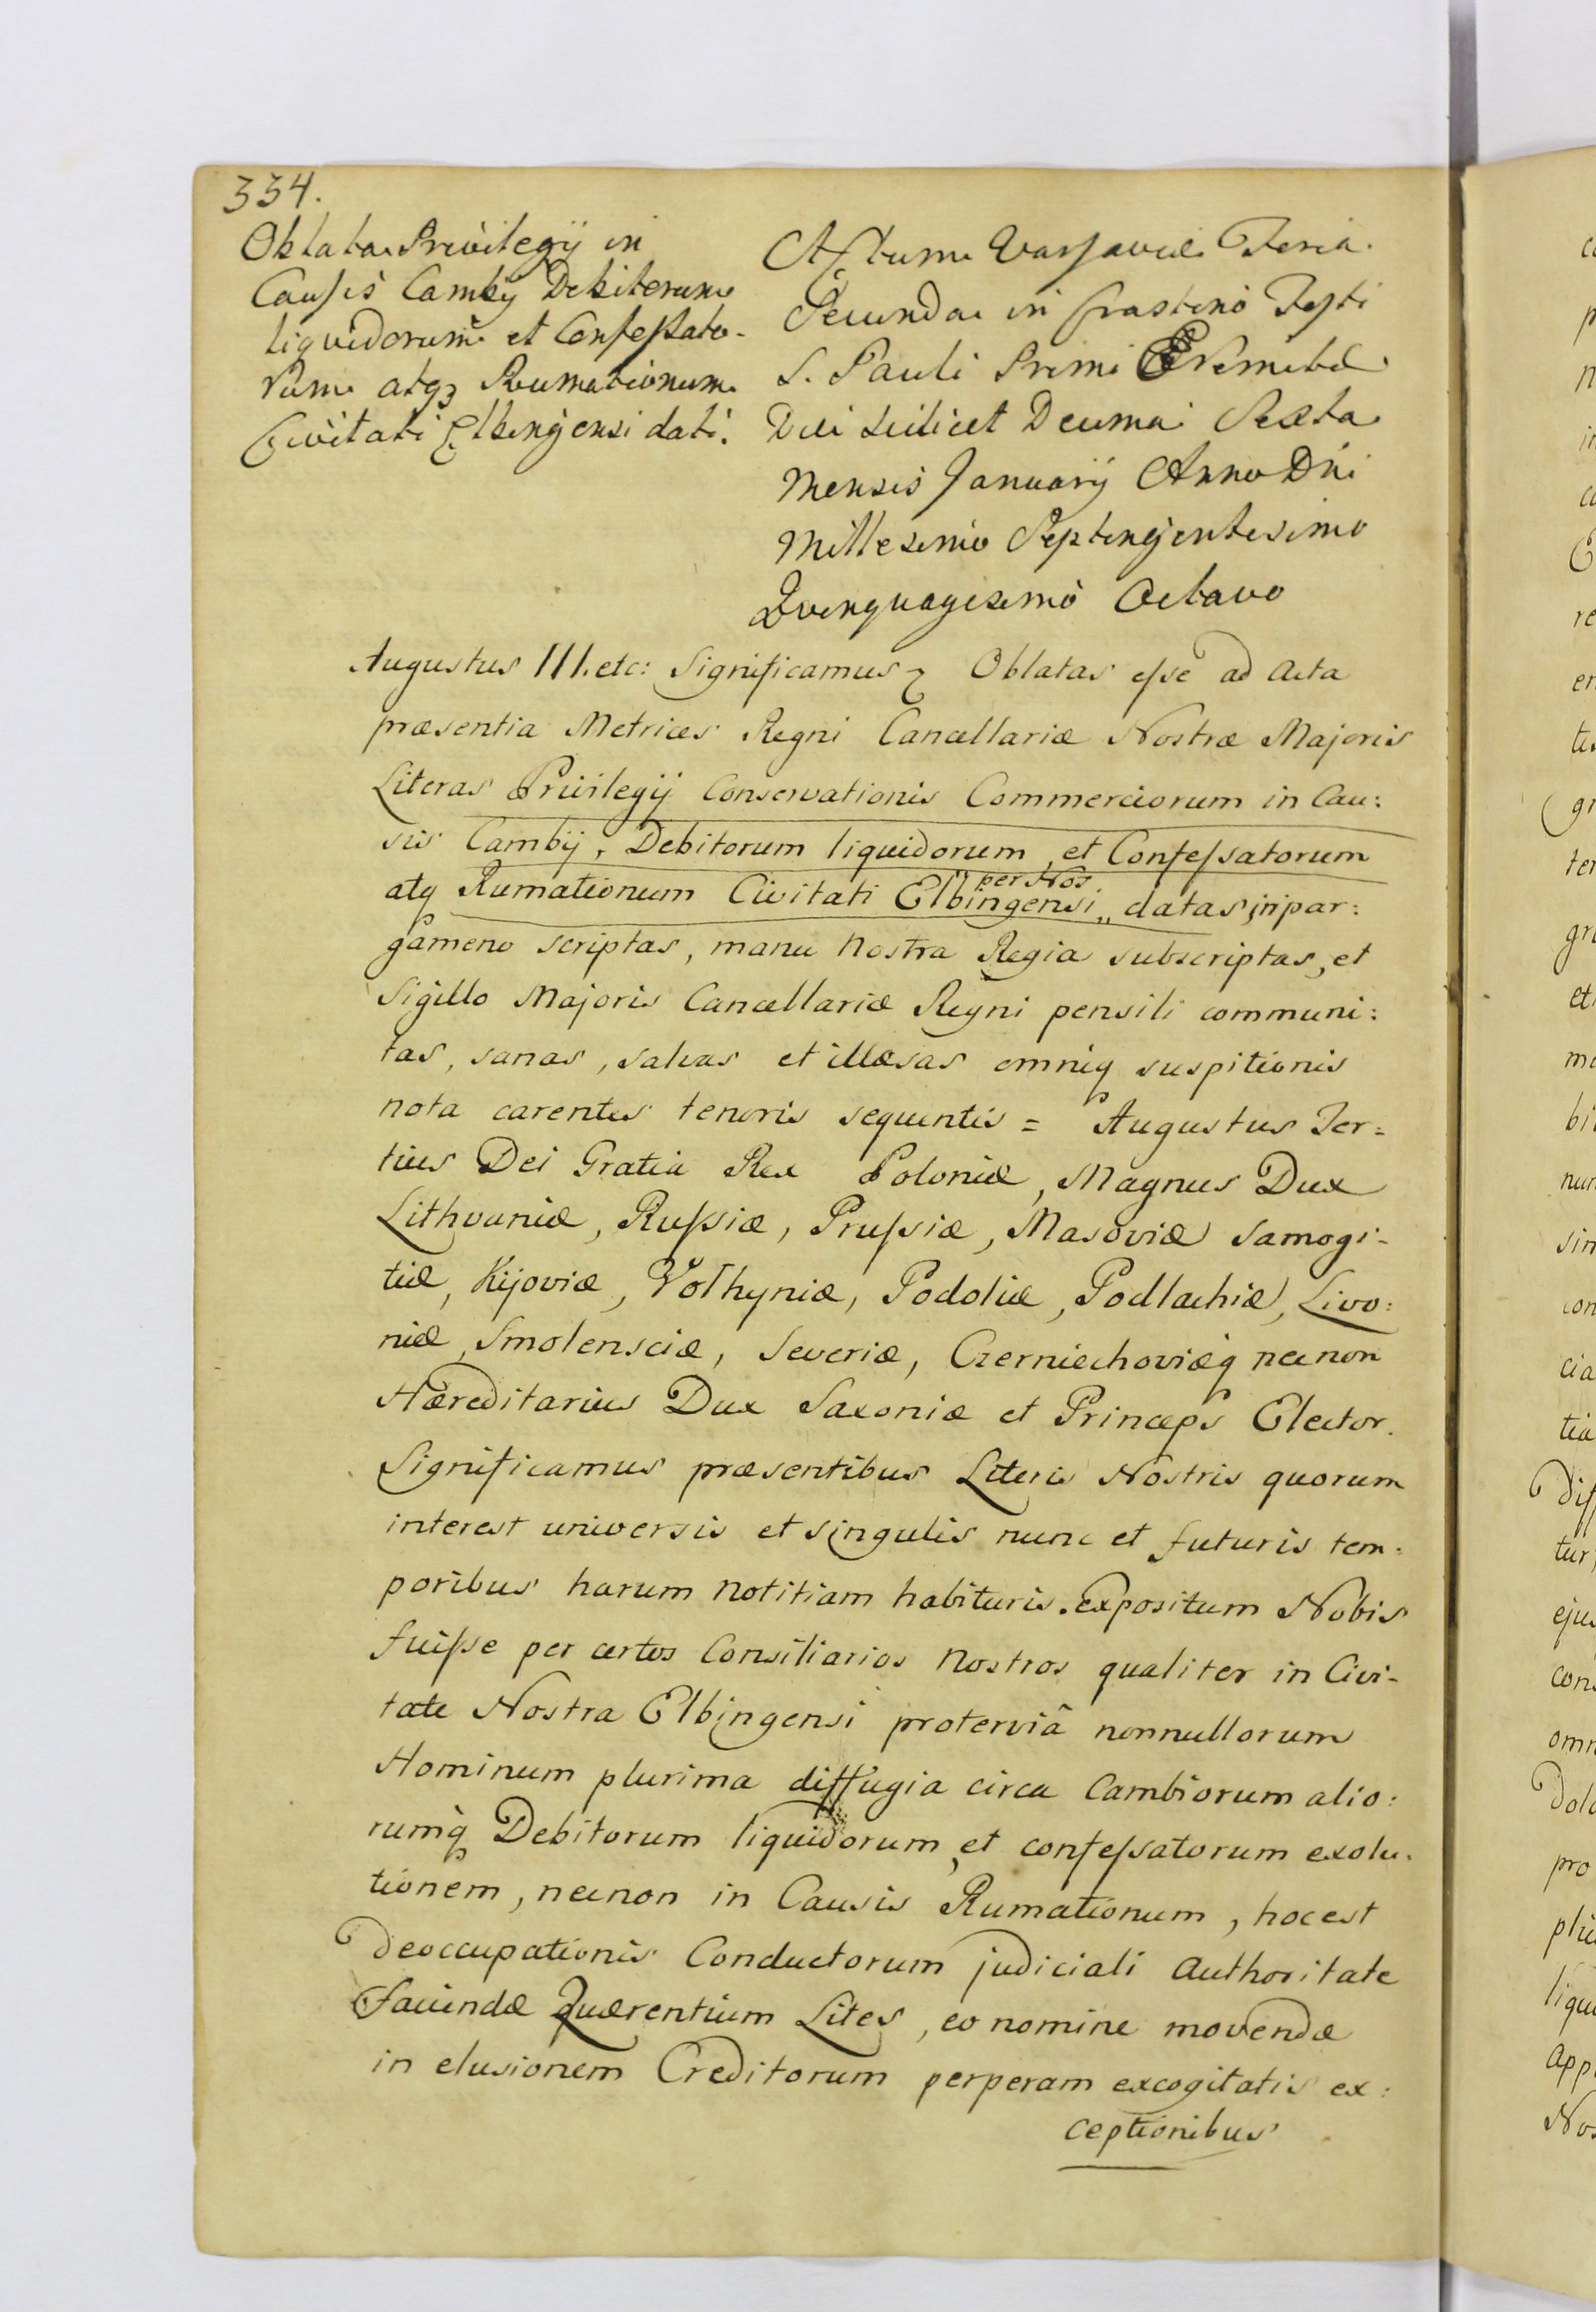 334.
Oblata Privilegij in
Causis Cambij Debitorum
liquidorum et Confessato-
rum atq3 Rumationum
Civitati Elbingensi dati.
Actum Varsaviæ Feria
Secunda in Crastino Festi
S. Pauli Primi Eremitæ
Die scilicet Decima Sexta
Mensis Januarij Anno Dñi
Millesimo Septingentesimo
Quinquagesimo Octavo
Augustus III. etc: Significamus Oblatas esse ad Acta
præsentia Metrices Regni Cancellariæ Nostræ Majoris
Literas Privilegij Conservationis Commerciorum in Cau:
sis Cambij, Debitorum liquidorum, et Confessatorum
atq Rumationum Civitati Elbingensi per Nos datas, in par:
gameno scriptas, manu Nostra Regia subscriptas, et
Sigillo Majoris Cancellariæ Regni pensili communi:
tas, sanas, salvas et illæsas omniq suspitionis
nota carentes tenoris sequentis = Augustus Ter=
tius Dei Gratia Rex Poloniæ, Magnus Dux
Lithvaniæ, Russiæ, Prussiæ, Masoviæ Samogi-
tiæ, Kijoviæ, Volhyniæ, Podoliæ, Podlachiæ, Livo:
niæ, Smolensciæ, Severiæ, Czerniechoviæq necnon
Hæreditarius Dux Saxoniæ et Princeps Elector.
Significamus præsentibus Literis Nostris quorum
interest universis et singulis nunc et futuris tem:
poribus harum notitiam habituris. Expositum Nobis
fuisse per certos Consiliarios Nostros qualiter in Civi-
tate Nostra Elbingensi proterviâ nonnullorum
Hominum plurima diffugia circa Cambiorum alio:
rumq Debitorum liquidorum et confessatorum exolu.
tionem, necnon in Causis Rumationum, hoc est
deoccupationis Conductorum judiciali Authoritate
faciendæ Quærentium Lites, eo nomine movendæ
in elusionem Creditorum perperam excogitatis ex:
ceptionibus